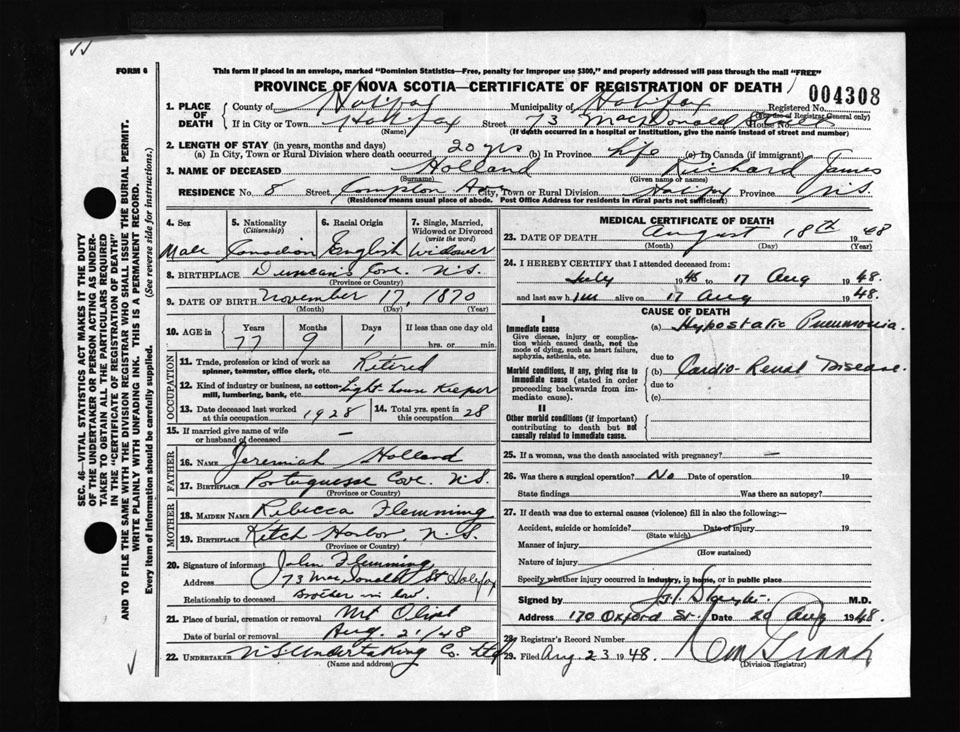 FORM 6
This form if placed in an envelope, marked "Dominion Statistics—Free, penalty for improper use $300," and properly addressed will pass through the mail "FREE"
PROVINCE OF NOVA SCOTIA—CERTIFICATE OF REGISTRATION OF DEATH
004308
1. PLACE OF DEATH
County of Halifax Municipality of Halifax Registered No.
(For use of Registrar General only)
If in City or Town Halifax Street 73 MacDonald House No.
(Name) (If death occurred in a hospital or institution, give the name instead of street and number)
2. LENGTH OF STAY (in years, months and days)
(a) In City, Town or Rural Division where death occurred 20 yrs (b) In Province Life (c) In Canada (if immigrant)
3. NAME OF DECEASED Holland Richard James
(Surname) (Given name or names)
RESIDENCE No. 8 Street Compton Ave City, Town or Rural Division Halifax Province N.S.
(Residence means usual place of abode. Post Office Address for residents in rural parts not sufficient)
4. Sex 5. Nationality (Citizenship) 6. Racial Origin 7. Single, Married, Widowed or Divorced (write the word)
Male Canadian English Widower
8. BIRTHPLACE Duncan's Cove. N.S.
(Province or Country)
9. DATE OF BIRTH November 17, 1870
(Month) (Day) (Year)
10. AGE in Years Months Days If less than one day old
77 9 1 hrs. or min.
OCCUPATION
11. Trade, profession or kind of work as spinner, teamster, office clerk, etc. Retired
12. Kind of industry or business, as cotton-mill, lumbering, bank, etc. Light house Keeper
13. Date deceased last worked at this occupation 1928 14. Total yrs. spent in this occupation 28
15. If married give name of wife or husband of deceased —
FATHER
16. NAME Jeremiah Holland
17. BIRTHPLACE Portuguesse Cove. N.S.
(Province or Country)
MOTHER
18. MAIDEN NAME Rebecca Flemming
19. BIRTHPLACE Ketch Harbor, N.S.
(Province or Country)
20. Signature of informant John Flemming
Address 73 MacDonald St Halifax
Relationship to deceased Brother in law.
21. Place of burial, cremation or removal Mt Olivet
Date of burial or removal Aug. 21/48
22. UNDERTAKER N S Undertaking Co. Ltd
(Name and address)
MEDICAL CERTIFICATE OF DEATH
23. DATE OF DEATH August 18th 1948
(Month) (Day) (Year)
24. I HEREBY CERTIFY that I attended deceased from:
July 1948 to 17 Aug 1948.
and last saw him alive on 17 Aug 1948.
CAUSE OF DEATH
I
Immediate cause
Give disease, injury or complication which caused death, not the mode of dying, such as heart failure, asphyxia, asthenia, etc.
(a) Hypostatic Pneumonia.
due to
Morbid conditions, if any, giving rise to immediate cause (stated in order proceeding backwards from immediate cause).
(b) Cardio-Renal Disease.
due to
(c)
II
Other morbid conditions (if important) contributing to death but not causally related to immediate cause.
25. If a woman, was the death associated with pregnancy? —
26. Was there a surgical operation? No Date of operation 19
State findings Was there an autopsy?
27. If death was due to external causes (violence) fill in also the following:—
Accident, suicide or homicide? Date of injury 19
(State which)
Manner of injury
(How sustained)
Nature of injury
Specify whether injury occurred in industry, in home, or in public place
Signed by M.D.
Address 170 Oxford St. Date 20 Aug 1948
28. Registrar's Record Number
29. Filed Aug. 23 1948.
(Division Registrar)
SEC. 46—VITAL STATISTICS ACT MAKES IT THE DUTY
OF THE UNDERTAKER OR PERSON ACTING AS UNDER-
TAKER TO OBTAIN ALL THE PARTICULARS REQUIRED
IN THE "CERTIFICATE OF REGISTRATION OF DEATH"
AND TO FILE THE SAME WITH THE DIVISION REGISTRAR WHO SHALL ISSUE THE BURIAL PERMIT.
WRITE PLAINLY WITH UNFADING INK. THIS IS A PERMANENT RECORD.
Every item of information should be carefully supplied. (See reverse side for instructions.)